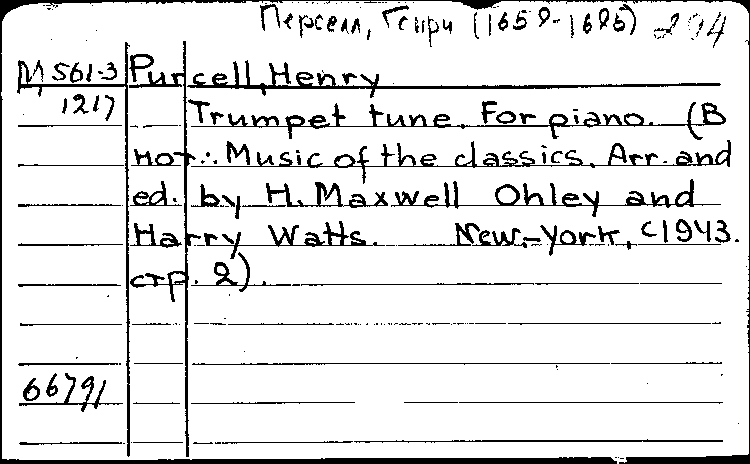 Перселл, Генри (1659-1695) 294
М 561-3 Purcell, Henry
1217 Trumpet tune. For piano. (В
нот.: Music of the classics. Arr. and
ed. by H. Maxwell Ohley and
Harry Watts. New-York, c1943.
стр. 2).
66791